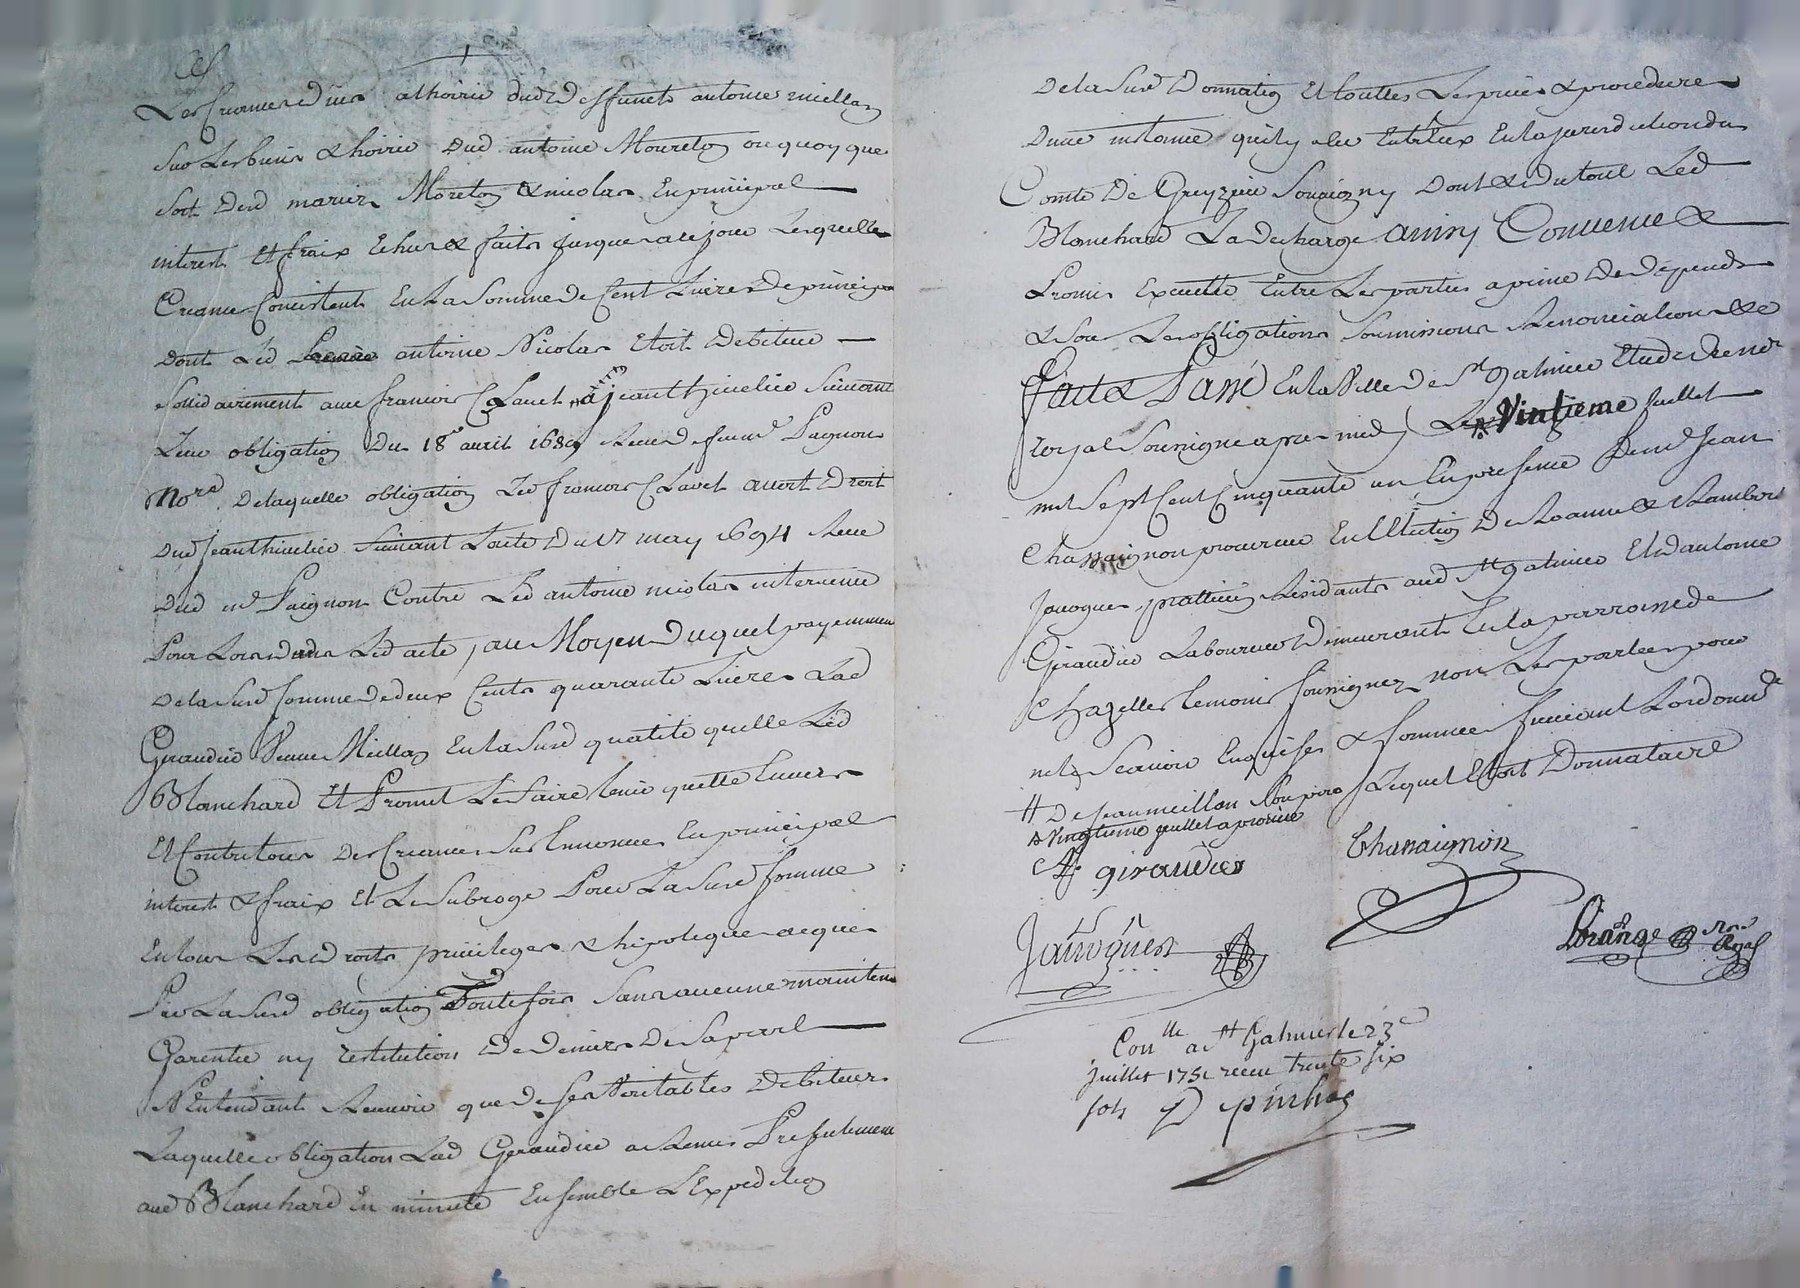 Les Creances dües a lhoirie dud deffunct antoine miellan
sur Les biens & hoirie Dud antoine Moureton ou quoy que
soit Desd mariez Moreton & nicolas En principal
interest Et fraix Echus & faits jusques a ce jour Lesquelles
Creances Consistent En La Somme De Cent Livres De principal
Dont Led antoine Nicolas Etoit Debiteur
Sollidairement avec francois Clavel a jean thivelier Suivant
Leur obligation Du 18e avril 1689 Receue feu me Pagnon
Nore. De laquelle obligation Led francois Clavel avoit Droit
Dud jean thivelier Suivant Lacte Du 17 may 1694 Receu
Dud me Paignon Contre Led antoine nicolas intervenu
Pour Lors dans Led acte, au Moyen Duquel payement
De la Susd Somme De deux Cents quarante Livres Lad
Giraudier Veuve Miellan En la Susd qualité quitte Led
Blanchard Et Promet Le faire tenir quitte Envers
Et Contre tous Des Creances Sus Enoncees En principal
interest & fraix Et Le Subroge Pour La Susd somme
En tous Les droits privileges & hipoteques acquis
Par La Susd obligation Toutefois Sans aucune maintenue
Garentie ny restitution De Deniers De Sa part
N'Entendant Recevoir que De Ses Veritables Debiteurs
Laquelle obligation Lad Giraudier a Remis Presentement
aud Blanchard En minutte Ensemble L'Expedition
De la Susd Donnation Et touttes Les pieces & procedures
Dune instance quil y a eu Entreux En la jurisdiction du
Comté De Greyzieu Souvigny Dont & Du tout Led
Blanchard La decharge ainsy Convenu &
Promis Executer Entre Les parties a peine De Depends
& sous Les obligations Soumissions Renonciations &c
fait & Passé En la Ville De St galmier Etude De nore
royal Soussigné apres midy Le Vintieme Juillet
mil Sept Cent Cinquante un En presence De me Jean
Chassaignon procureur En L'Election De Roanne & Rambert
jacogues, pratticien Residants aud St galmier Et antoine
Giraudier Laboureur Demeurant En la parroisse de
Chazelles temoins soussignez non Les parties pour
ne Scavoir Enquises & sommées suivant Lordonnce
# De jean meillan Son pere Lequel Etoit Donnataire
Vingtieme juillet aprouvé
A giraudier
Chassaignon
Jacogues
Lorange Nre Royal
Conlle a St Galmier le 23e
juillet 1751 receu trente six
sols Depinhac